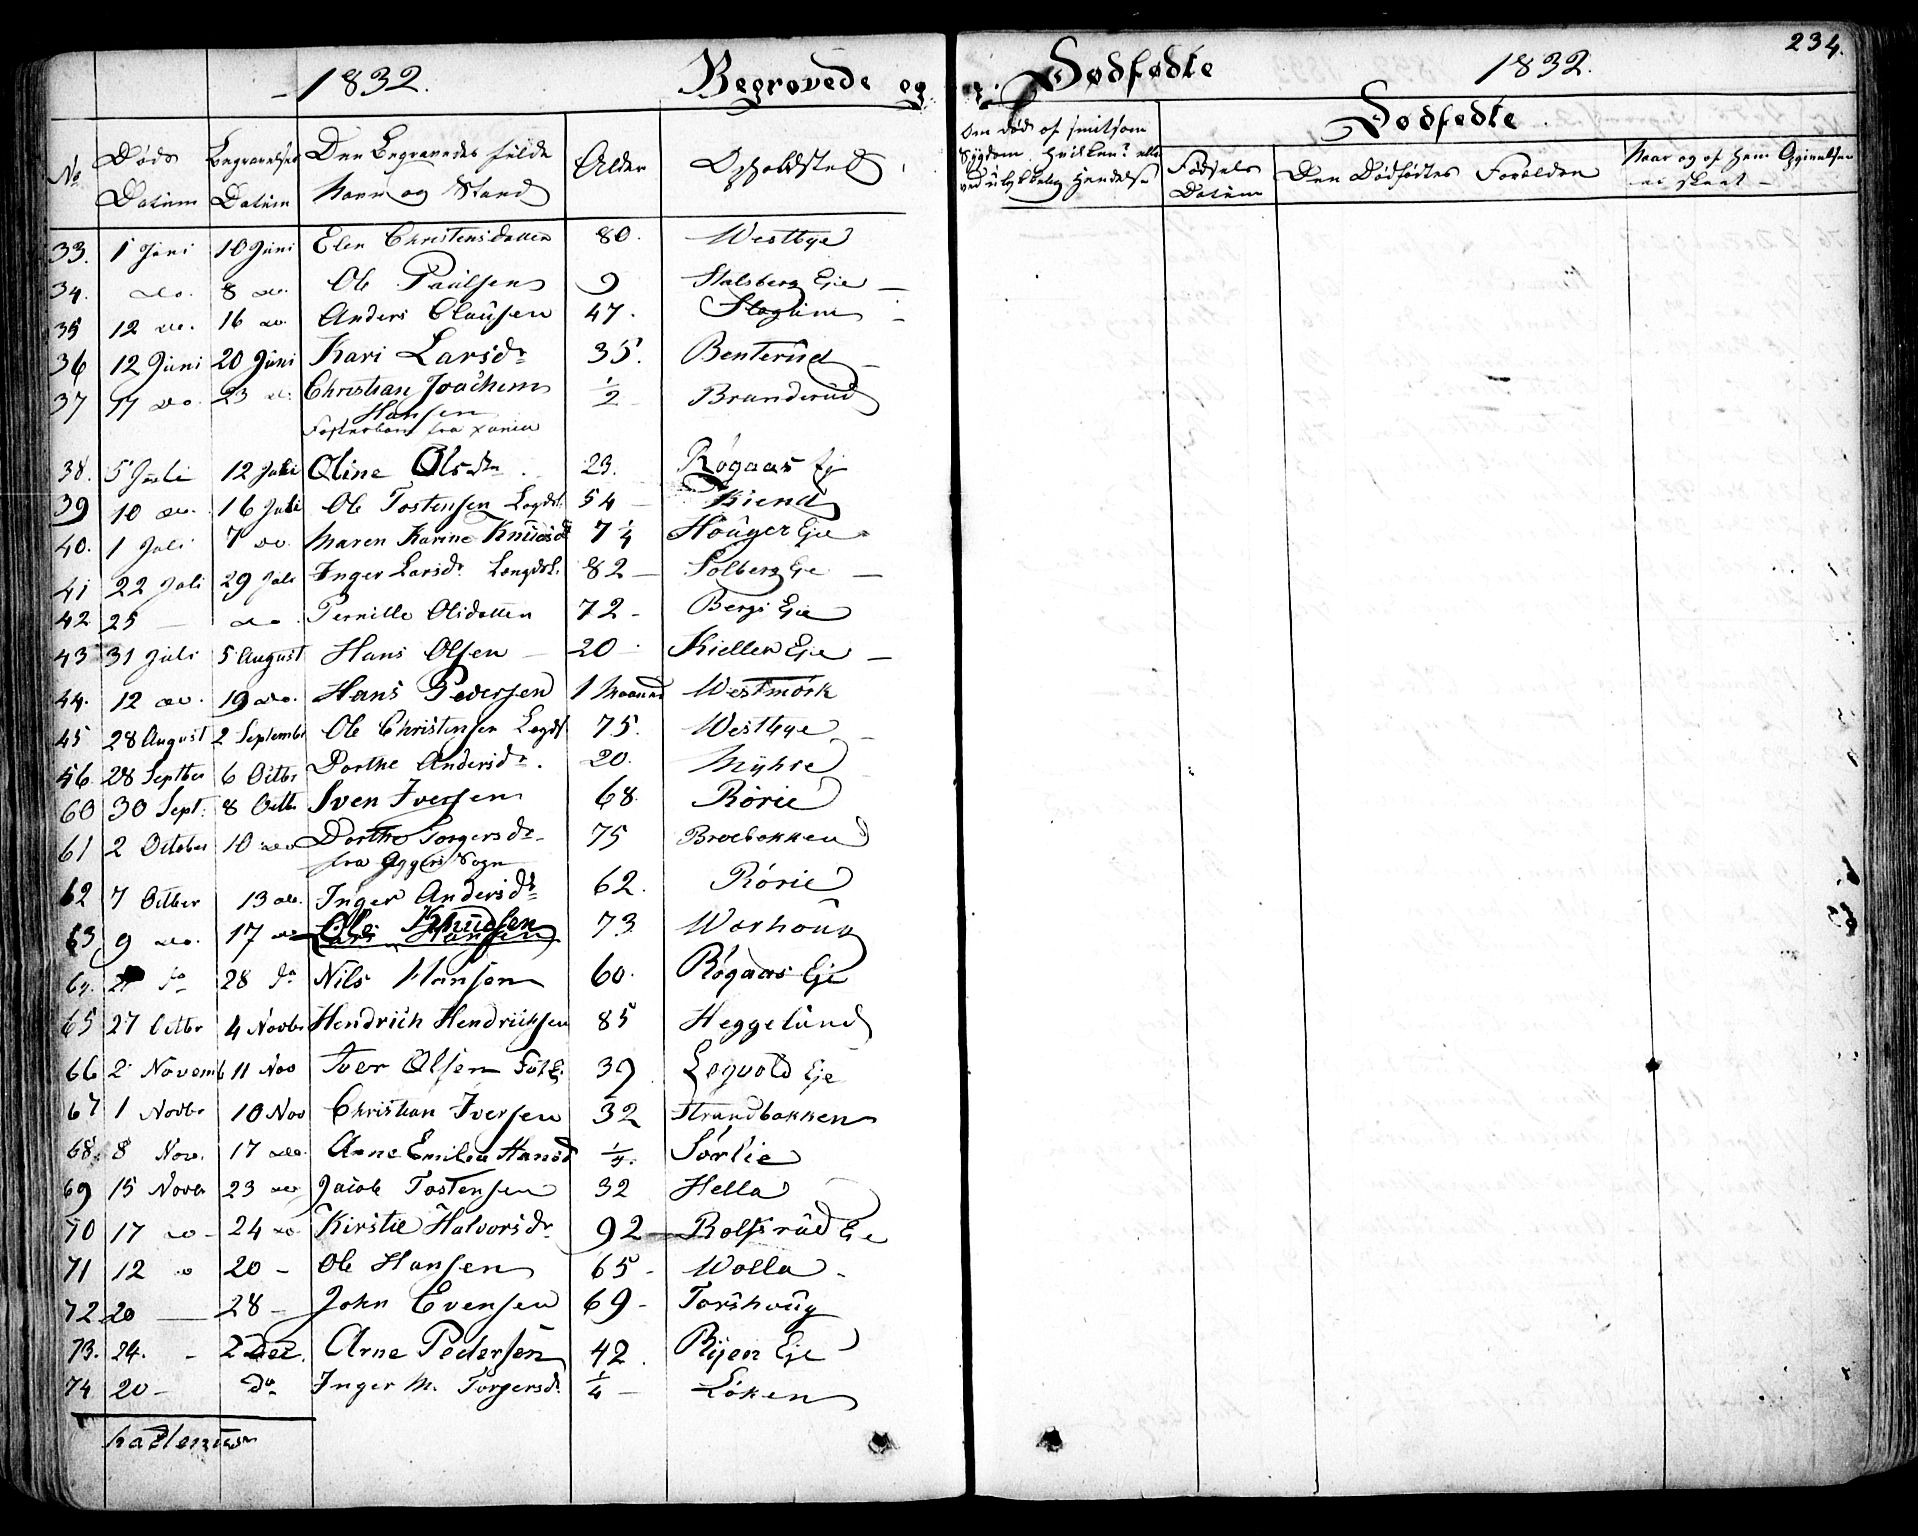 1832. Begravede og
No Døds Datum Begravelses Datum Den Begravedes fulde Navn og Stand Alder Opholdsted
33. 1 Juni 10 Juni Elen Christensdatter 80. Westbye
34. do. 8 do. Ole Paulsen 9 Stalsberg Eie
35 12 do. 16 do. Anders Clausen 47.
36 12 Juni 20 Juni Kari Larsdr 35. Benterud
37 17 do. 23 do. Christian Joachim ½ Branderud
Hansen
Fosterbarn fra Xania
38. 5 Juli 12 Juli Oline Olsdr 23. Røgaas Ej
39 10 do. 16 Juli Ole Tostensen Legdsl. 54 Kiend
40. 1 Juli 7 do. Maren Karine Knudsd 7¼ Houger Eie
41 22 Juli 29 Juli Inger Larsdr Leegdsl. 82 Solberg Eie
42 25 do. Pernille Olsdatter 72 Bergs Eie
43 31 Juli 5 August Hans Olsen 20 Kieller Eje
44. 12 do. 19 do. Hans Pedersen 1 Maaned Westmork
45 28 August 2 Septembr Ole Christensen Legdsl 75. Westbye
56. 28 Septber 6 Octbr Dorthe Andersdr. 20. Myhre
60 30 Sept. 8 Octbr Sven Iversen 68. Rörie
61 2 October 10 do Dorthe Torgersdr 75 Broebakken
fra Aggers Sogn
62 7 Octber 13 do. Inger Andersdr 62. Rörie
63 9 do. 17 do Ole Knudsen 73 Warhoug
Lars Hansen
64. 21 do 28 do Nils Hansen 60. Røgaas Eje
65 27 Octbr 4 Novbr Hendrich Hendrichsen 85 Heggelund
66 2 Novemb 11 Nov Iver Olsen 39 Legvold Eje
67 1 Novbr 10 Nov Christian Iversen 32 Strandbakken
68. 8 Nov. 17 do. Anne Emilie Hansd ¼. Sörlie
69 15 Novbr 23 do Jacob Tostensen 32 Hella
70 17 do 24 do Kirstie Halvorsdr 92 Rolfsrud Eie
71 12 do 20 Ole Hansen 65 Wolla
72 20 28 John Evensen 69 Torshoug
73. 24. 2 Dec. Arne Pedersen 42. Ryen Eje
74 20 do Inger M. Torgersdr ¼ Löken
234.
Dødfødte 1832.
Om død af smitsom Sygdom, hvilken? eller ved ulykkelig Hændelse
Dødfødte.
Fødsels Datum Den Dødfødtes Forældre Naar og af hvem Anmeldelsen er skeet